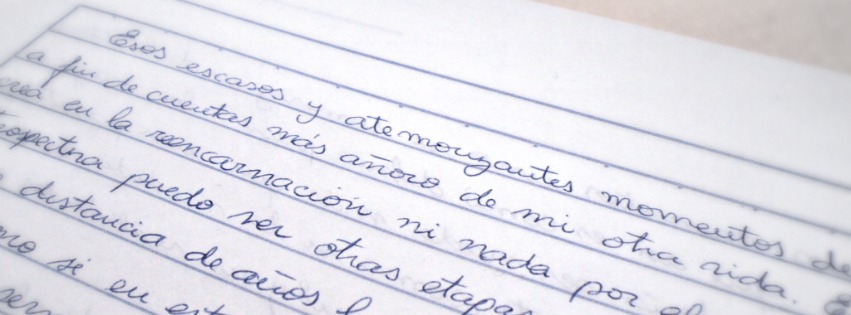 Esos escasos y atemorizantes momentos de
a fin de cuentas más añoro de mi otra vida. E
crea en la reencarnación ni nada por el
puedo ver otras etapas
distancia de años
si en est